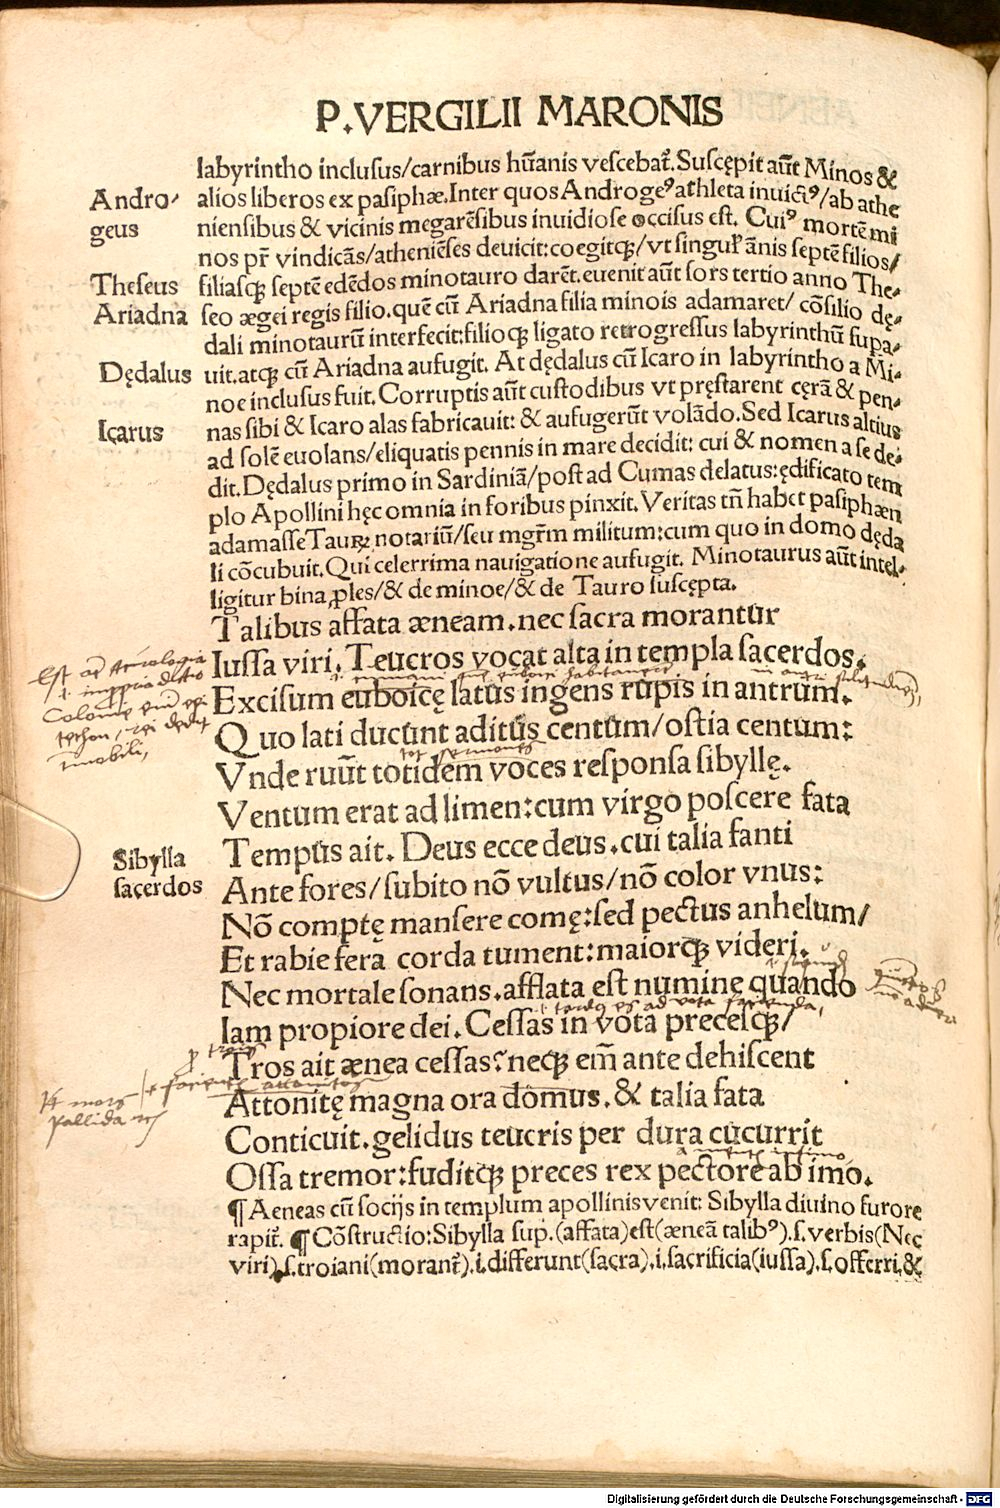 P.VERGILII MARONIS
labyrintho inclusus/carnibus hūanis vescebat᷑.Suscępit aūt Minos &
Andro-
geus
alios liberos ex pasiphæ.Inter quos Androgeꝰ athleta inuictꝰ/ab athe
niensibus & vicinis megarēsibus inuidiose occisus est. Cuiꝰ mortē mi
nos pr̄ vindicās/atheniēses deuicit:coegitqꝫ/vt singul᷑ ānis septē filios/
Theseus
filiasqꝫ septē edēdos minotauro darēt.euenit aūt sors tertio anno The-
Ariadna
seo ægei regis filio.quē cū Ariadna filia minois adamaret/ cōsilio dę-
dali minotaurū interfecit:filioqꝫ ligato retrogressus labyrinthū supa-
Dędalus
uit.atqꝫ cū Ariadna aufugit. At dędalus cū Icaro in labyrintho a Mi-
noe inclusus fuit. Corruptis aūt custodibus vt pręstarent cęrā & pen-
Icarus
nas sibi & Icaro alas fabricauit: & aufugerūt volādo. Sed Icarus altius
ad solē euolans/eliquatis pennis in mare decidit: cui & nomen a se de-
dit. Dędalus primo in Sardiniā/post ad Cumas delatus:ędificato tem
plo Apollini hęc omnia in foribus pinxit. Veritas tn̄ habet pasiphæn
adamasse Tauꝝ notariū/seu mgr̄m militum:cum quo in domo dęda
li cōcubuit. Qui celerrima nauigatione aufugit. Minotaurus aūt intel-
ligitur bina ꝓles/& de minoe/& de Tauro suscępta.
Talibus affata æneam.nec sacra morantur
Iussa viri. Teucros vocat alta in templa sacerdos.
Excisum euboicę latus ingens rupis in antrum.
Quo lati ducunt aditus centum/ostia centum:
tot sermones
Vnde ruūt totidem voces responsa sibyllę.
Ventum erat ad limen:cum virgo poscere fata
Sibylla
sacerdos
Tempus ait. Deus ecce deus.cui talia fanti
Ante fores/subito nō vultus/nō color vnus:
Nō comptę mansere comę:sed pectus anhelum/
Et rabie fera corda tument:maiorqꝫ videri.
Nec mortale sonans.afflata est numine quando
Iam propiore dei. Cessas in vota precesqꝫ/
Tros ait ænea cessas? neqꝫ em̄ ante dehiscent
pallida
Attonitę magna ora domus. & talia fata
Conticuit.gelidus teucris per dura cucurrit
Ossa tremor:fuditqꝫ preces rex pectore ab imo.
¶ Aeneas cū socijs in templum apollinis venit: Sibylla diuino furore
rapit᷑. ¶ Cōstructio:Sibylla sup.(affata)est(æneā talibꝰ).s.verbis(Nec
viri).s.troiani(morant᷑).i.differunt(sacra).i.sacrificia(iussa).s.offerri.&
Digitalisierung gefördert durch die Deutsche Forschungsgemeinschaft - DFG